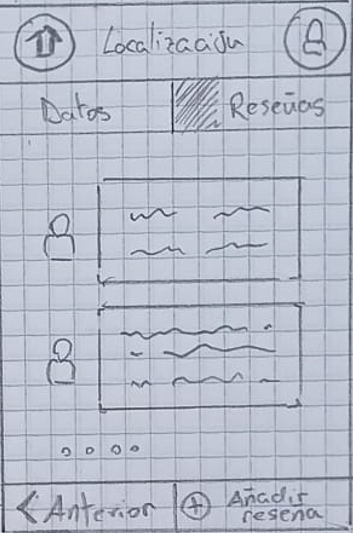 Localización
Datos
Reseñas
< Anterior
+ Añadir
reseña